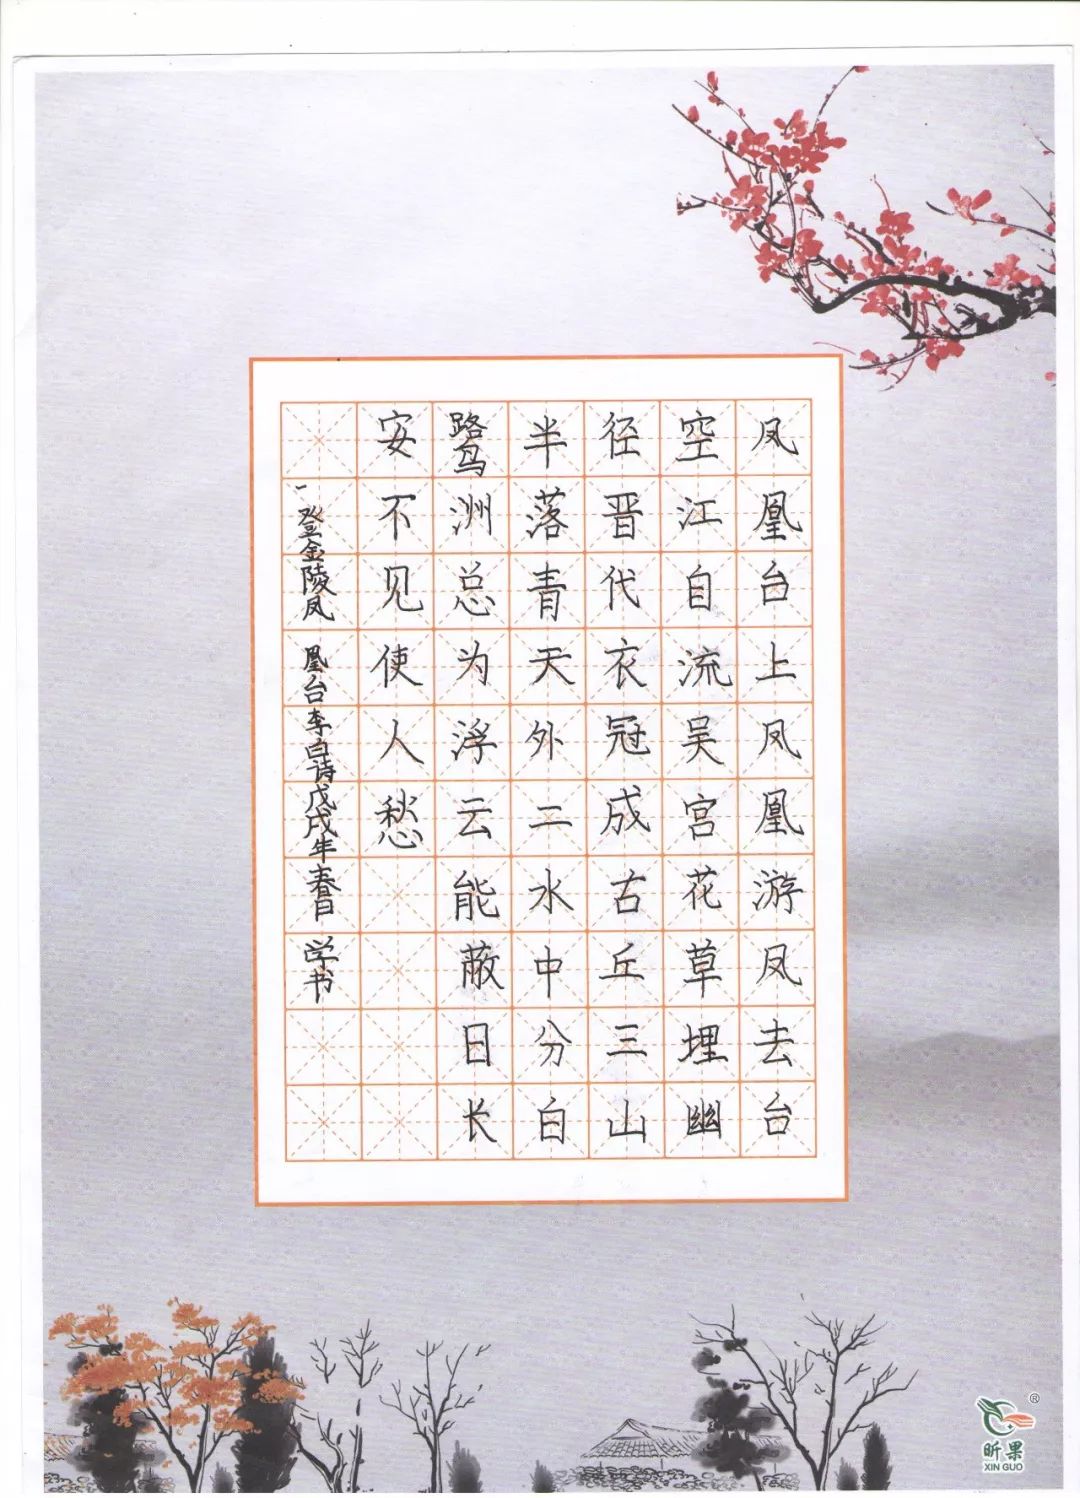 凤凰台上凤凰游凤去台
空江自流吴宫花草埋幽
径晋代衣冠成古丘三山
半落青天外二水中分白
鹭洲总为浮云能蔽日长
安不见使人愁
登金陵凤凰台李白诗戊戌年春日学书
昕果
XIN GUO
®